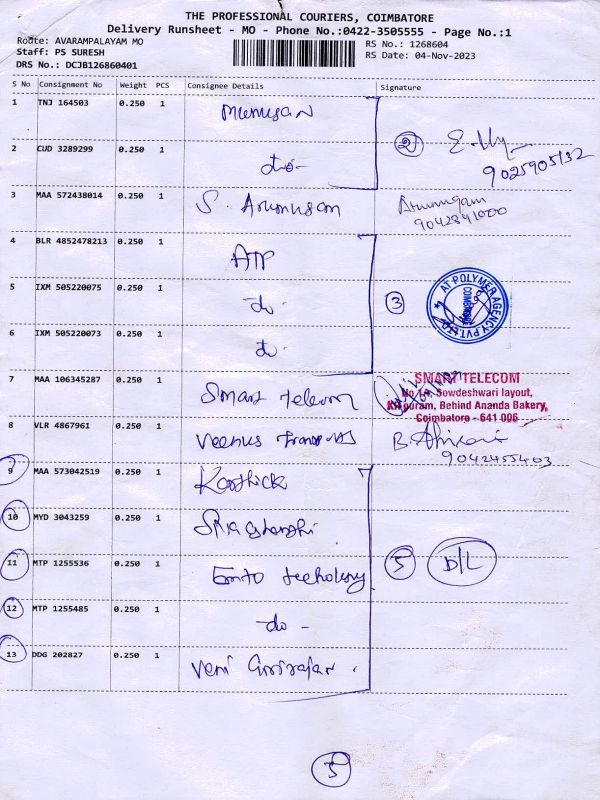 THE PROFESSIONAL COURIERS, COIMBATORE
Delivery Runsheet - MO - Phone No.:0422-3505555 - Page No.:1
Route: AVARAMPALAYAM MO
RS No.: 1268604
Staff: PS SURESH
RS Date: 04-Nov-2023
DRS No.: DCJB126860401
S No Consignment No Weight PCS Consignee Details Signature
1 TNJ 164503 0.250 1 Murugan
2 CUD 3289299 0.250 1 do - 2
9025905132
3 MAA 572438014 0.250 1 S. Arumugam Arumugam
9042841000
4 BLR 4852478213 0.250 1 ATP
5 IXM 505220075 0.250 1 do - 3 AT POLYMER AGENCY PVT LTD COIMBATORE
6 IXM 505220073 0.250 1 do -
7 MAA 106345287 0.250 1 Smart Telecom
SMART TELECOM
No 14, Sowdeshwari layout,
K.R.puram, Behind Ananda Bakery,
Coimbatore - 641 006
8 VLR 4867961 0.250 1 Veenus
9042455403
9 MAA 573042519 0.250 1 Karthick
10 MYD 3043259 0.250 1
11 MTP 1255536 0.250 1 5 D/L
12 MTP 1255485 0.250 1 do -
13 DDG 202827 0.250 1 Veni Girirajan .
5